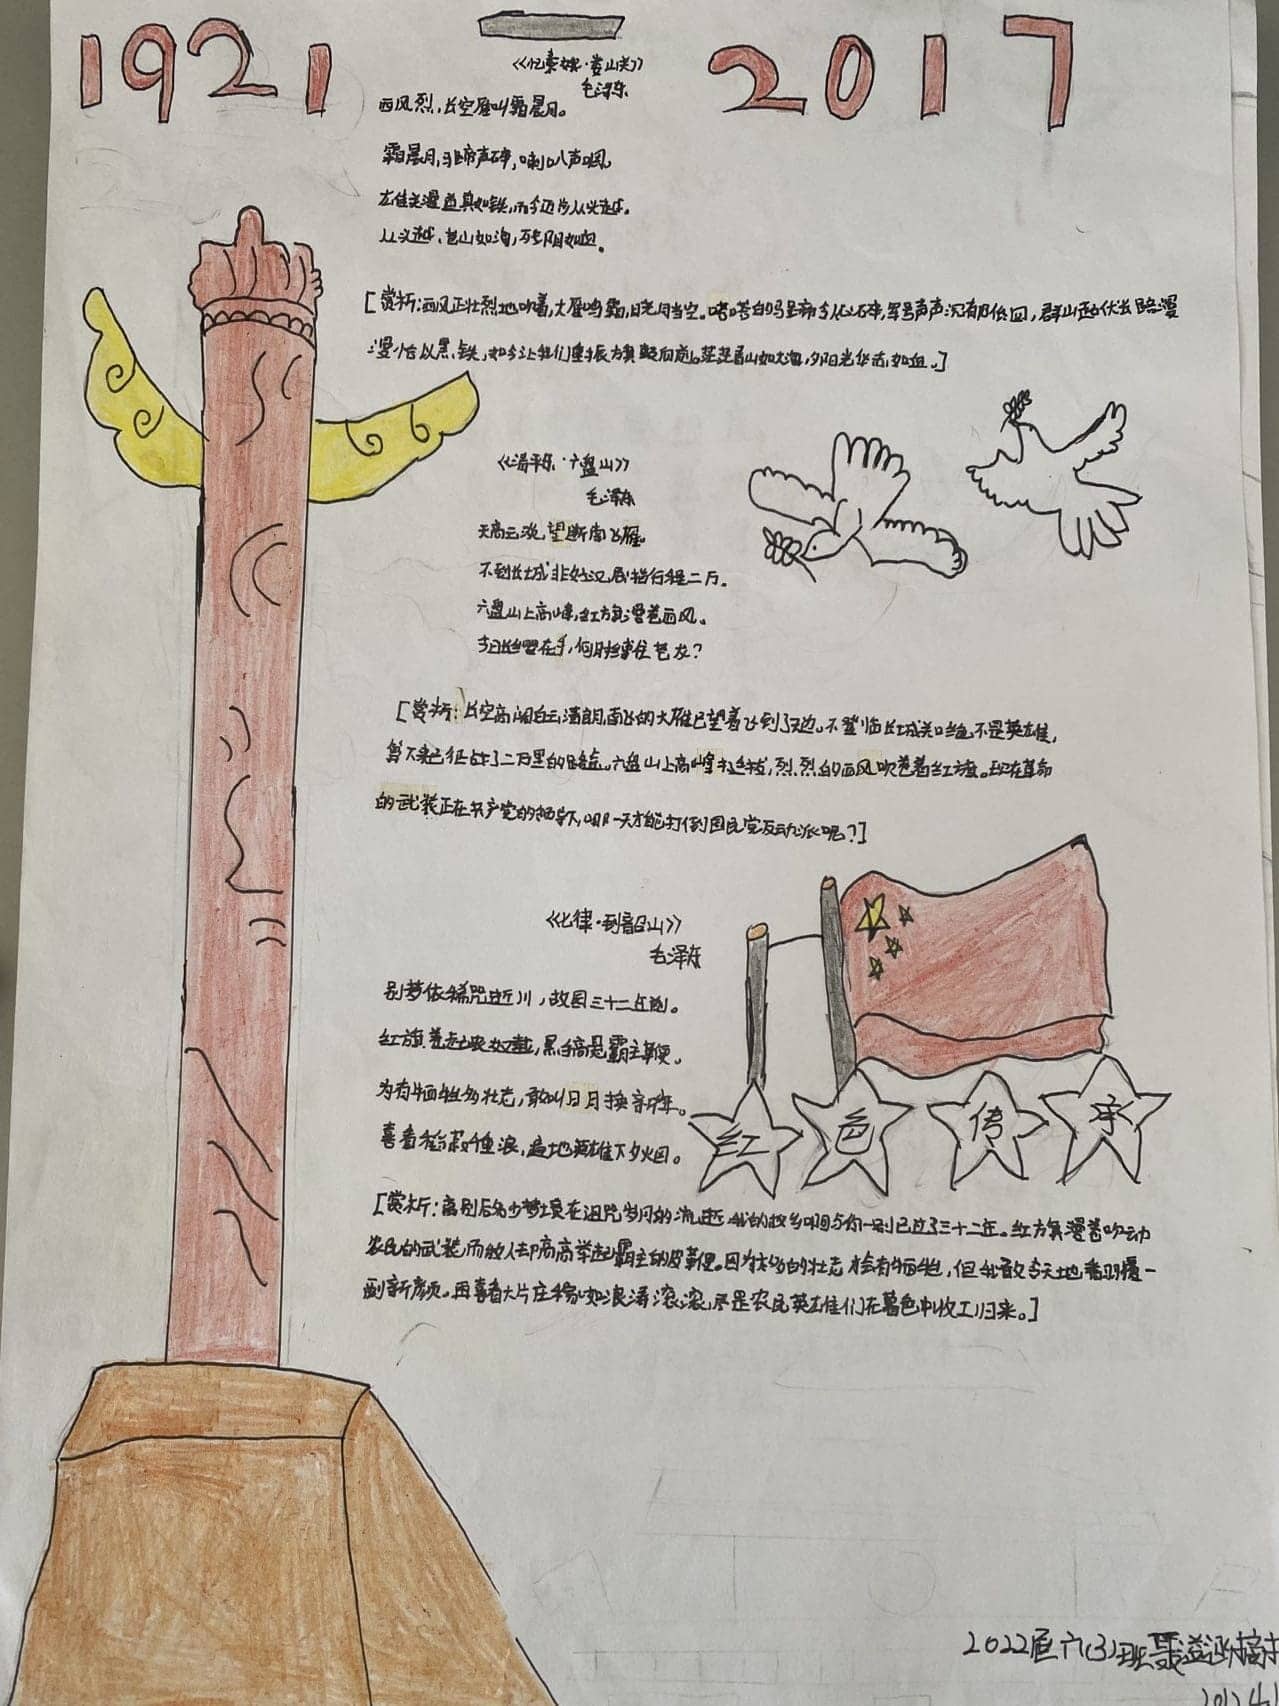 1921
2017
《忆秦娥·娄山关》
毛泽东
西风烈,长空雁叫霜晨月。
霜晨月,马蹄声碎,喇叭声咽。
雄关漫道真如铁,而今迈步从头越。
从头越,苍山如海,残阳如血。
[赏析:西风正壮烈地吹着,大雁鸣霜,晓月当空。嗒嗒的马蹄令人心碎,军号声声沉郁低回,群山起伏长路漫
漫恰似黑铁,如今让我们重振旗鼓向前。茫茫青山如大海,夕阳光华赤如血。]
《清平乐·六盘山》
毛泽东
天高云淡,望断南飞雁。
不到长城非好汉,屈指行程二万。
六盘山上高峰,红旗漫卷西风。
今日长缨在手,何时缚住苍龙?
[赏析:长空高阔白云清朗,南飞的大雁已望着飞到了天边。不登临长城关口绝不是英雄,
算下来已征战了二万里的路途。六盘山上高峰挺拔,烈烈的西风吹卷着红旗。现在革命
的武装正在共产党的领导下,哪一天才能打倒国民党反动派呢?]
《七律·到韶山》
毛泽东
别梦依稀咒逝川,故园三十二年前。
红旗卷起农奴戟,黑手高悬霸主鞭。
为有牺牲多壮志,敢叫日月换新年。
喜看稻菽千重浪,遍地英雄下夕烟。
红
色
传
[赏析:离别后多少梦境在诅咒岁月的流逝,我的故乡啊与你一别已过了三十二年。红旗漫卷吹动
农民的武装,而敌人却高高举起霸主的皮革鞭。因为太多的壮志才会有牺牲,但我敢令天地翻覆一
副新颜。再喜看大片庄稼如浪涛滚滚,尽是农民英雄们在暮色中收工归来。]
2022届六(3)班